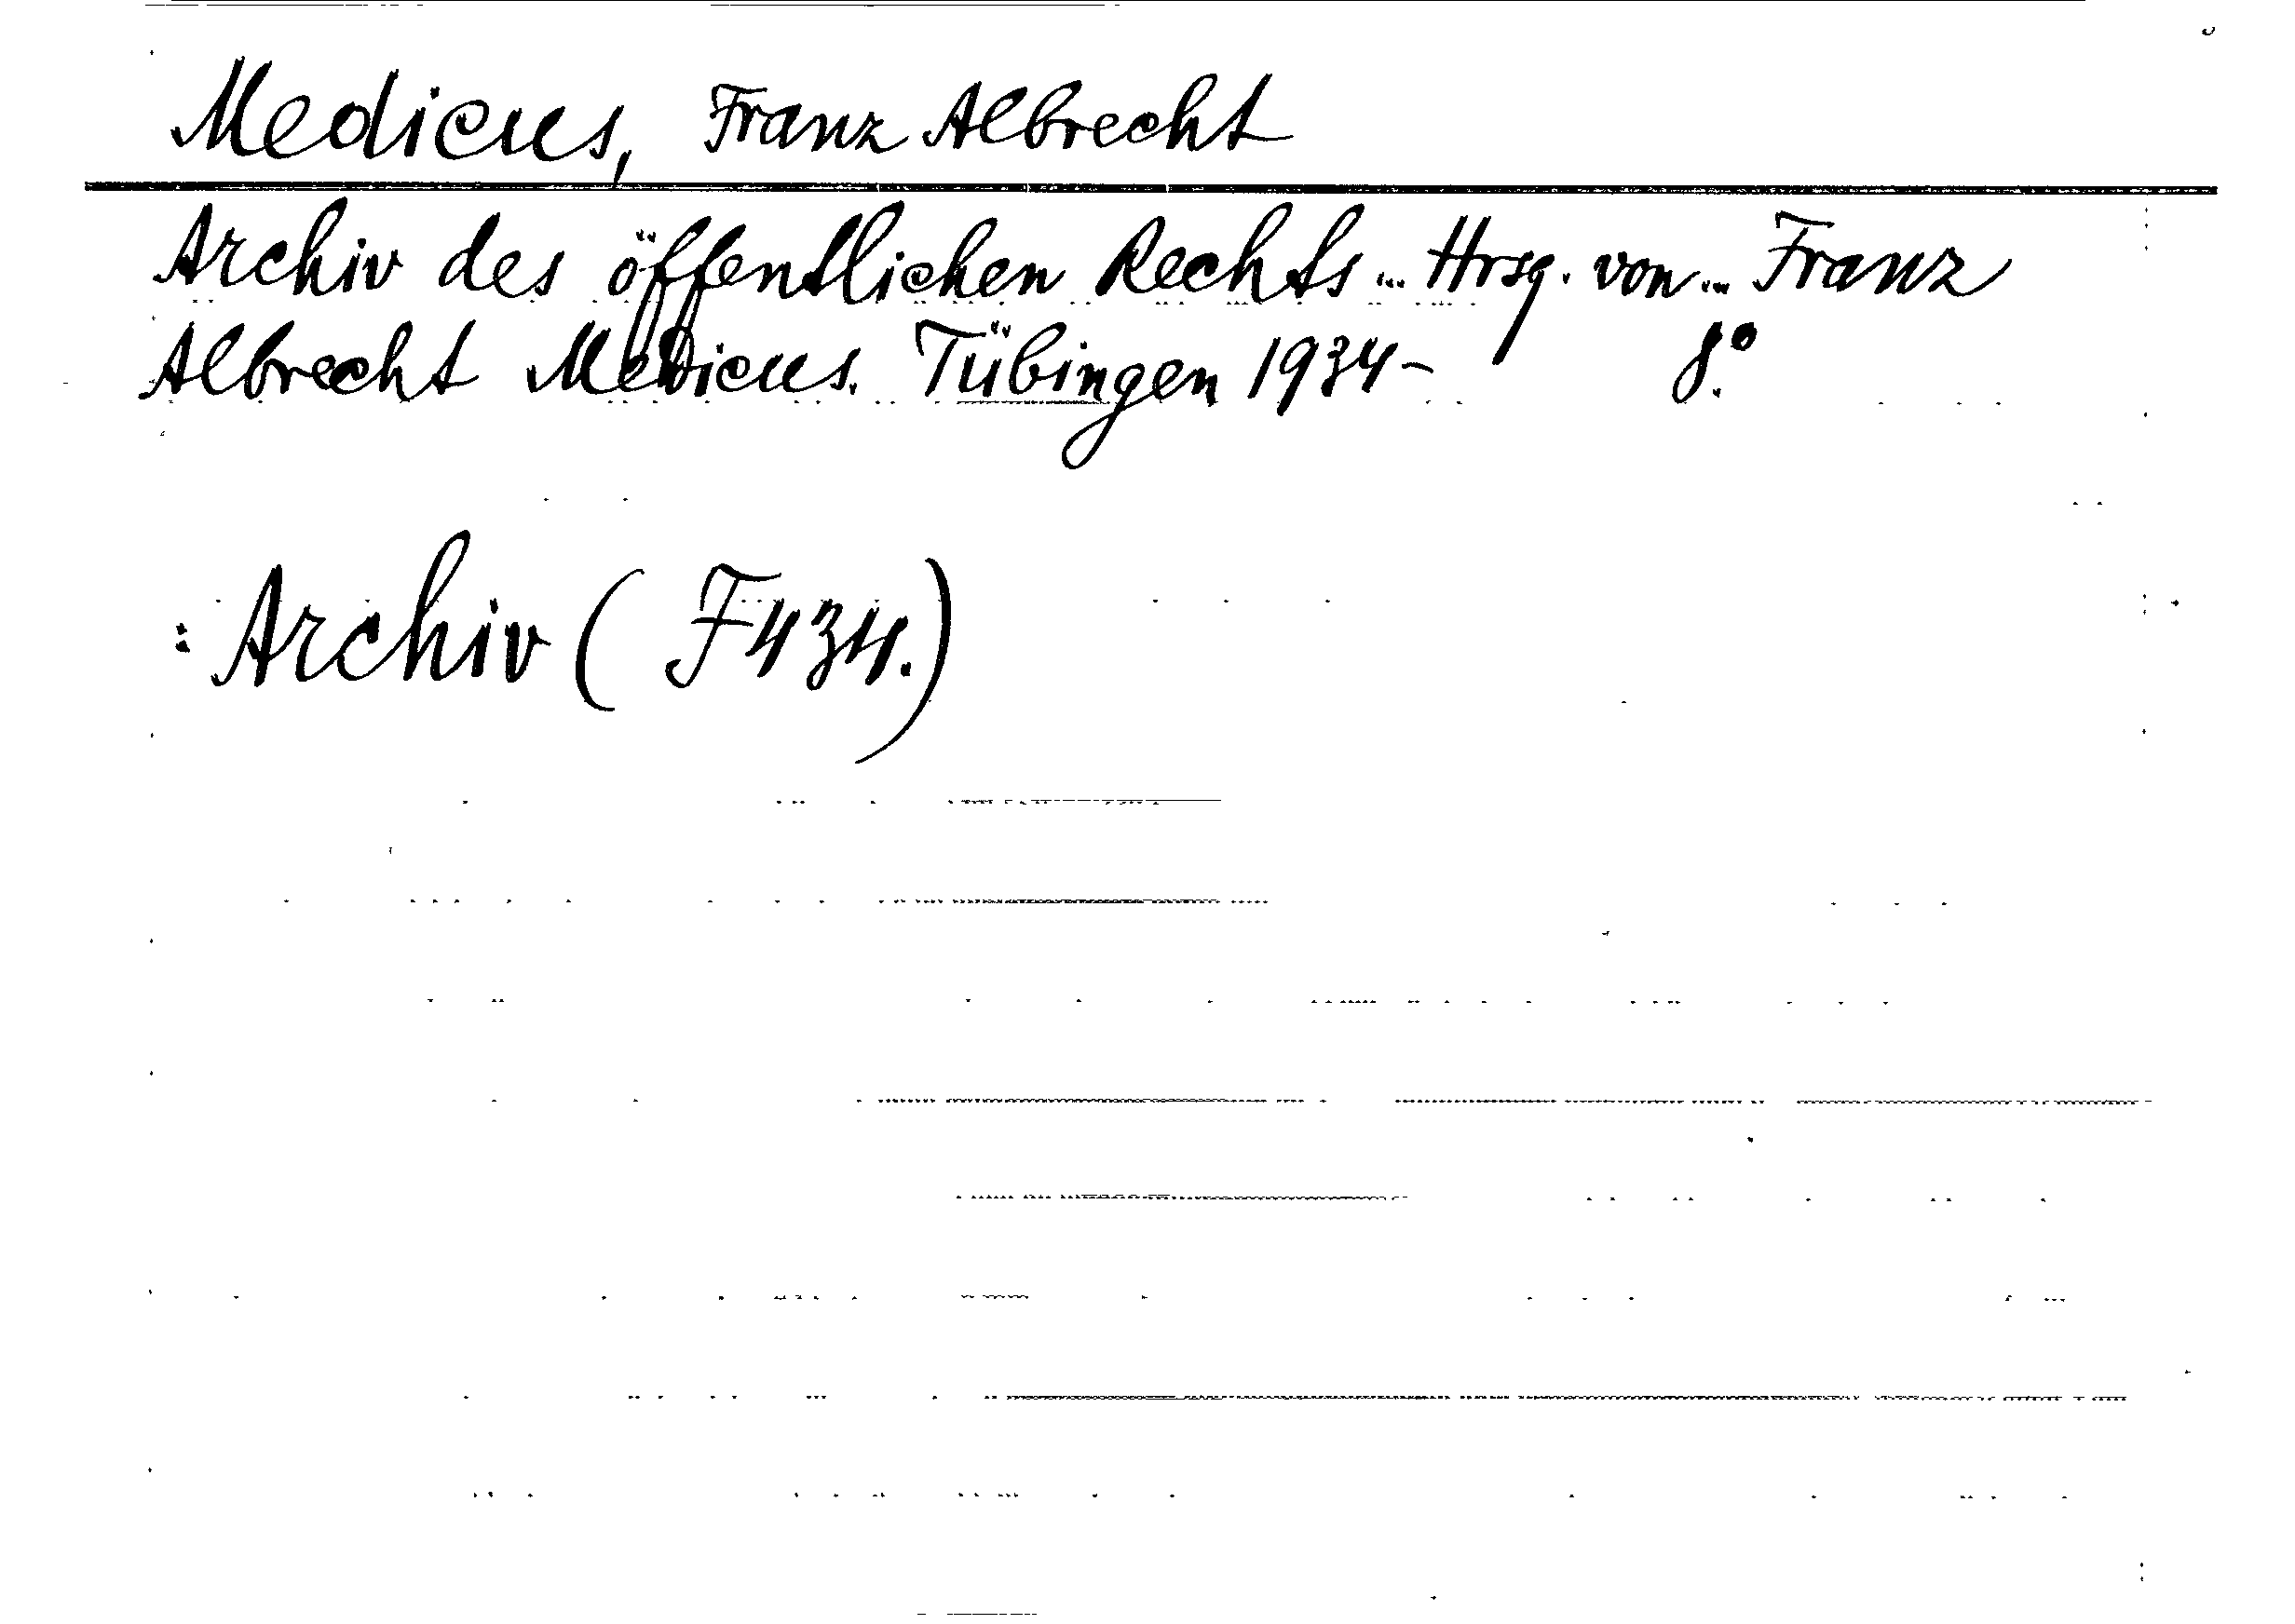 Medicus, Franz Albrecht
Archiv des öffentlichen Rechts... Hrsg. von... Franz
Albrecht Medicus. Tübingen 1934- 8°.
: Archiv ( F 434.)